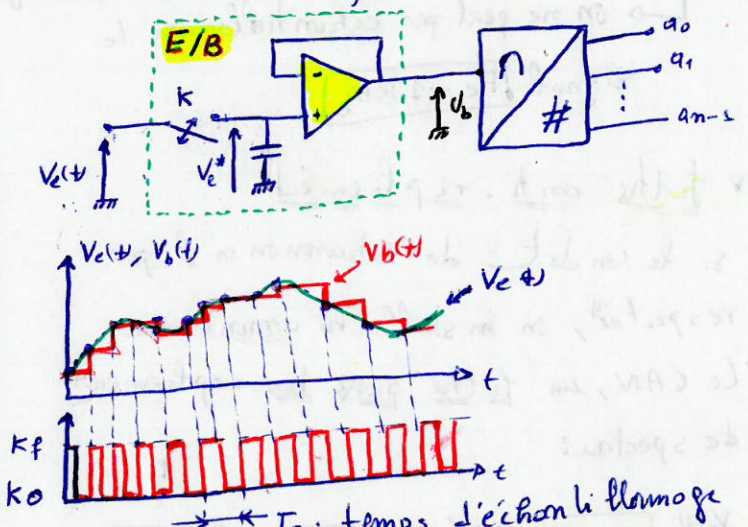 E/B
K
-
+
Ve(t)
Ve*
Vb
∩
#
a0
a1
⋮
an-1
Ve(t), Vb(t)
Vb(t)
Ve(t)
t
Kf
Ko
t
temps d'échantillonnage